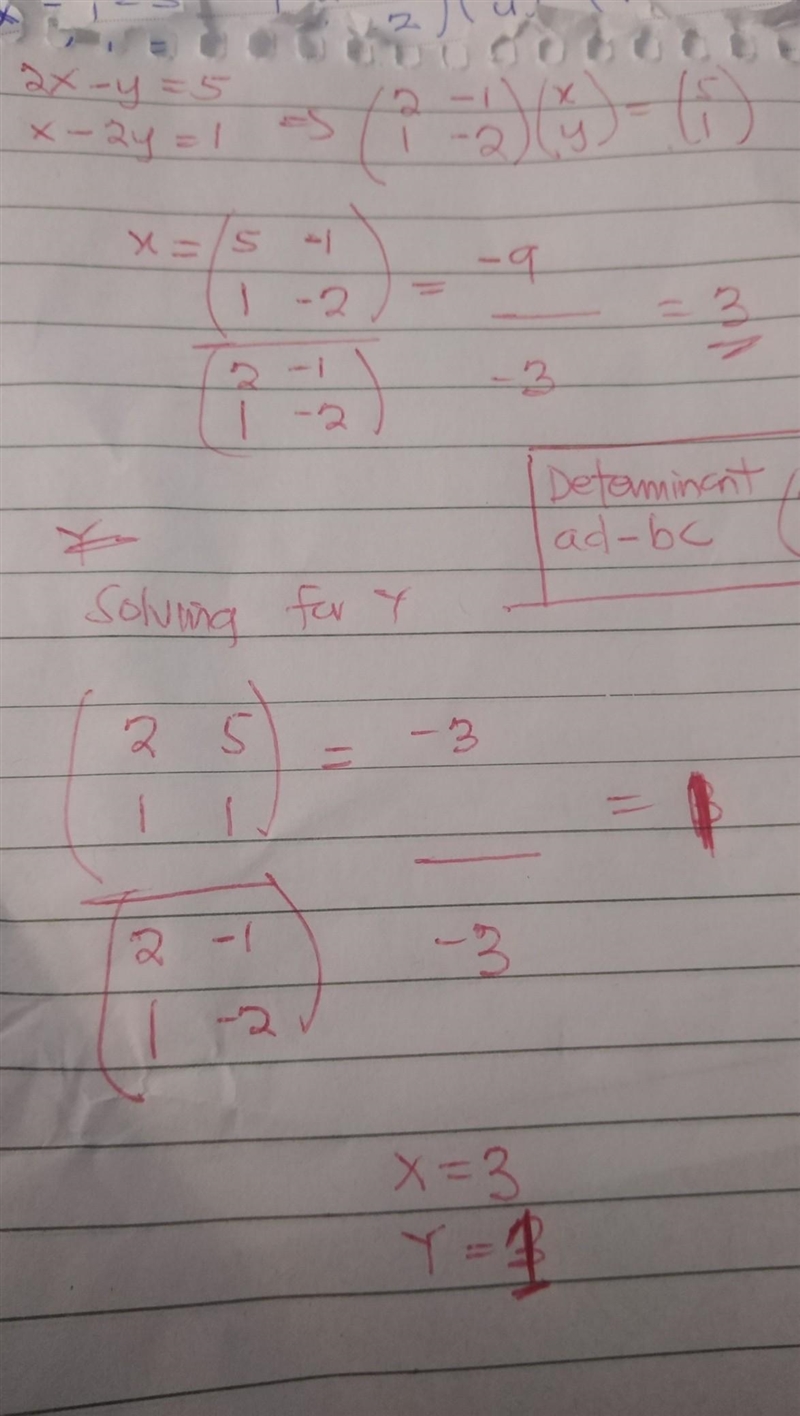 2x-y=5
x-2y=1 => (2 -1 1 -2)(x y) = (5 1)
x = (5 -1 = -9 = 3
1 -2)
(2 -1 -3
1 -2)
Determinant
ad-bc (
Y
Solving for Y
(2 5 = -3
1 1) = 1
(2 -1 -3
1 -2)
X=3
Y=1